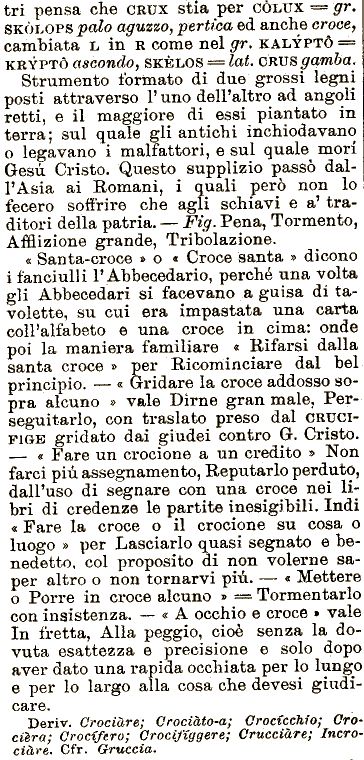 tri pensa che CRUX stia per CÒLUX = gr.
SKÒLOPS palo aguzzo, pertica ed anche croce,
cambiata L in R come nel gr. KALÝPTÔ =
KRÝPTÔ ascondo, SKÈLOS = lat. CRUS gamba.
Strumento formato di due grossi legni
posti attraverso l'uno dell'altro ad angoli
retti, e il maggiore di essi piantato in
terra; sul quale gli antichi inchiodavano
o legavano i malfattori, e sul quale morí
Gesú Cristo. Questo supplizio passò dal-
l'Asia ai Romani, i quali però non lo
fecero soffrire che agli schiavi e a' tra-
ditori della patria. — Fig. Pena, Tormento,
Afflizione grande, Tribolazione.
« Santa-croce » o « Croce santa » dicono
i fanciulli l'Abbecedario, perché una volta
gli Abbecedari si facevano a guisa di ta-
volette, su cui era impastata una carta
coll'alfabeto e una croce in cima: onde
poi la maniera familiare « Rifarsi dalla
santa croce » per Ricominciare dal bel
principio. — « Gridare la croce addosso so-
pra alcuno » vale Dirne gran male, Per-
seguitarlo, con traslato preso dal CRUCI-
FIGE gridato dai giudei contro G. Cristo.
— « Fare un crocione a un credito » Non
farci piú assegnamento, Reputarlo perduto,
dall'uso di segnare con una croce nei li-
bri di credenze le partite inesigibili. Indi
« Fare la croce o il crocione su cosa o
luogo » per Lasciarlo quasi segnato e be-
nedetto, col proposito di non volerne sa-
per altro o non tornarvi piú. — « Mettere
o Porre in croce alcuno » = Tormentarlo
con insistenza. — « A occhio e croce » vale
In fretta, Alla peggio, cioè senza la do-
vuta esattezza e precisione e solo dopo
aver dato una rapida occhiata per lo lungo
e per lo largo alla cosa che devesi giudi-
care.
Deriv. Crociàre; Crociàto-a; Crocícchio; Cro-
cièra; Crocífero; Crocifíggere; Crucciàre; Incro-
ciàre. Cfr. Gruccia.